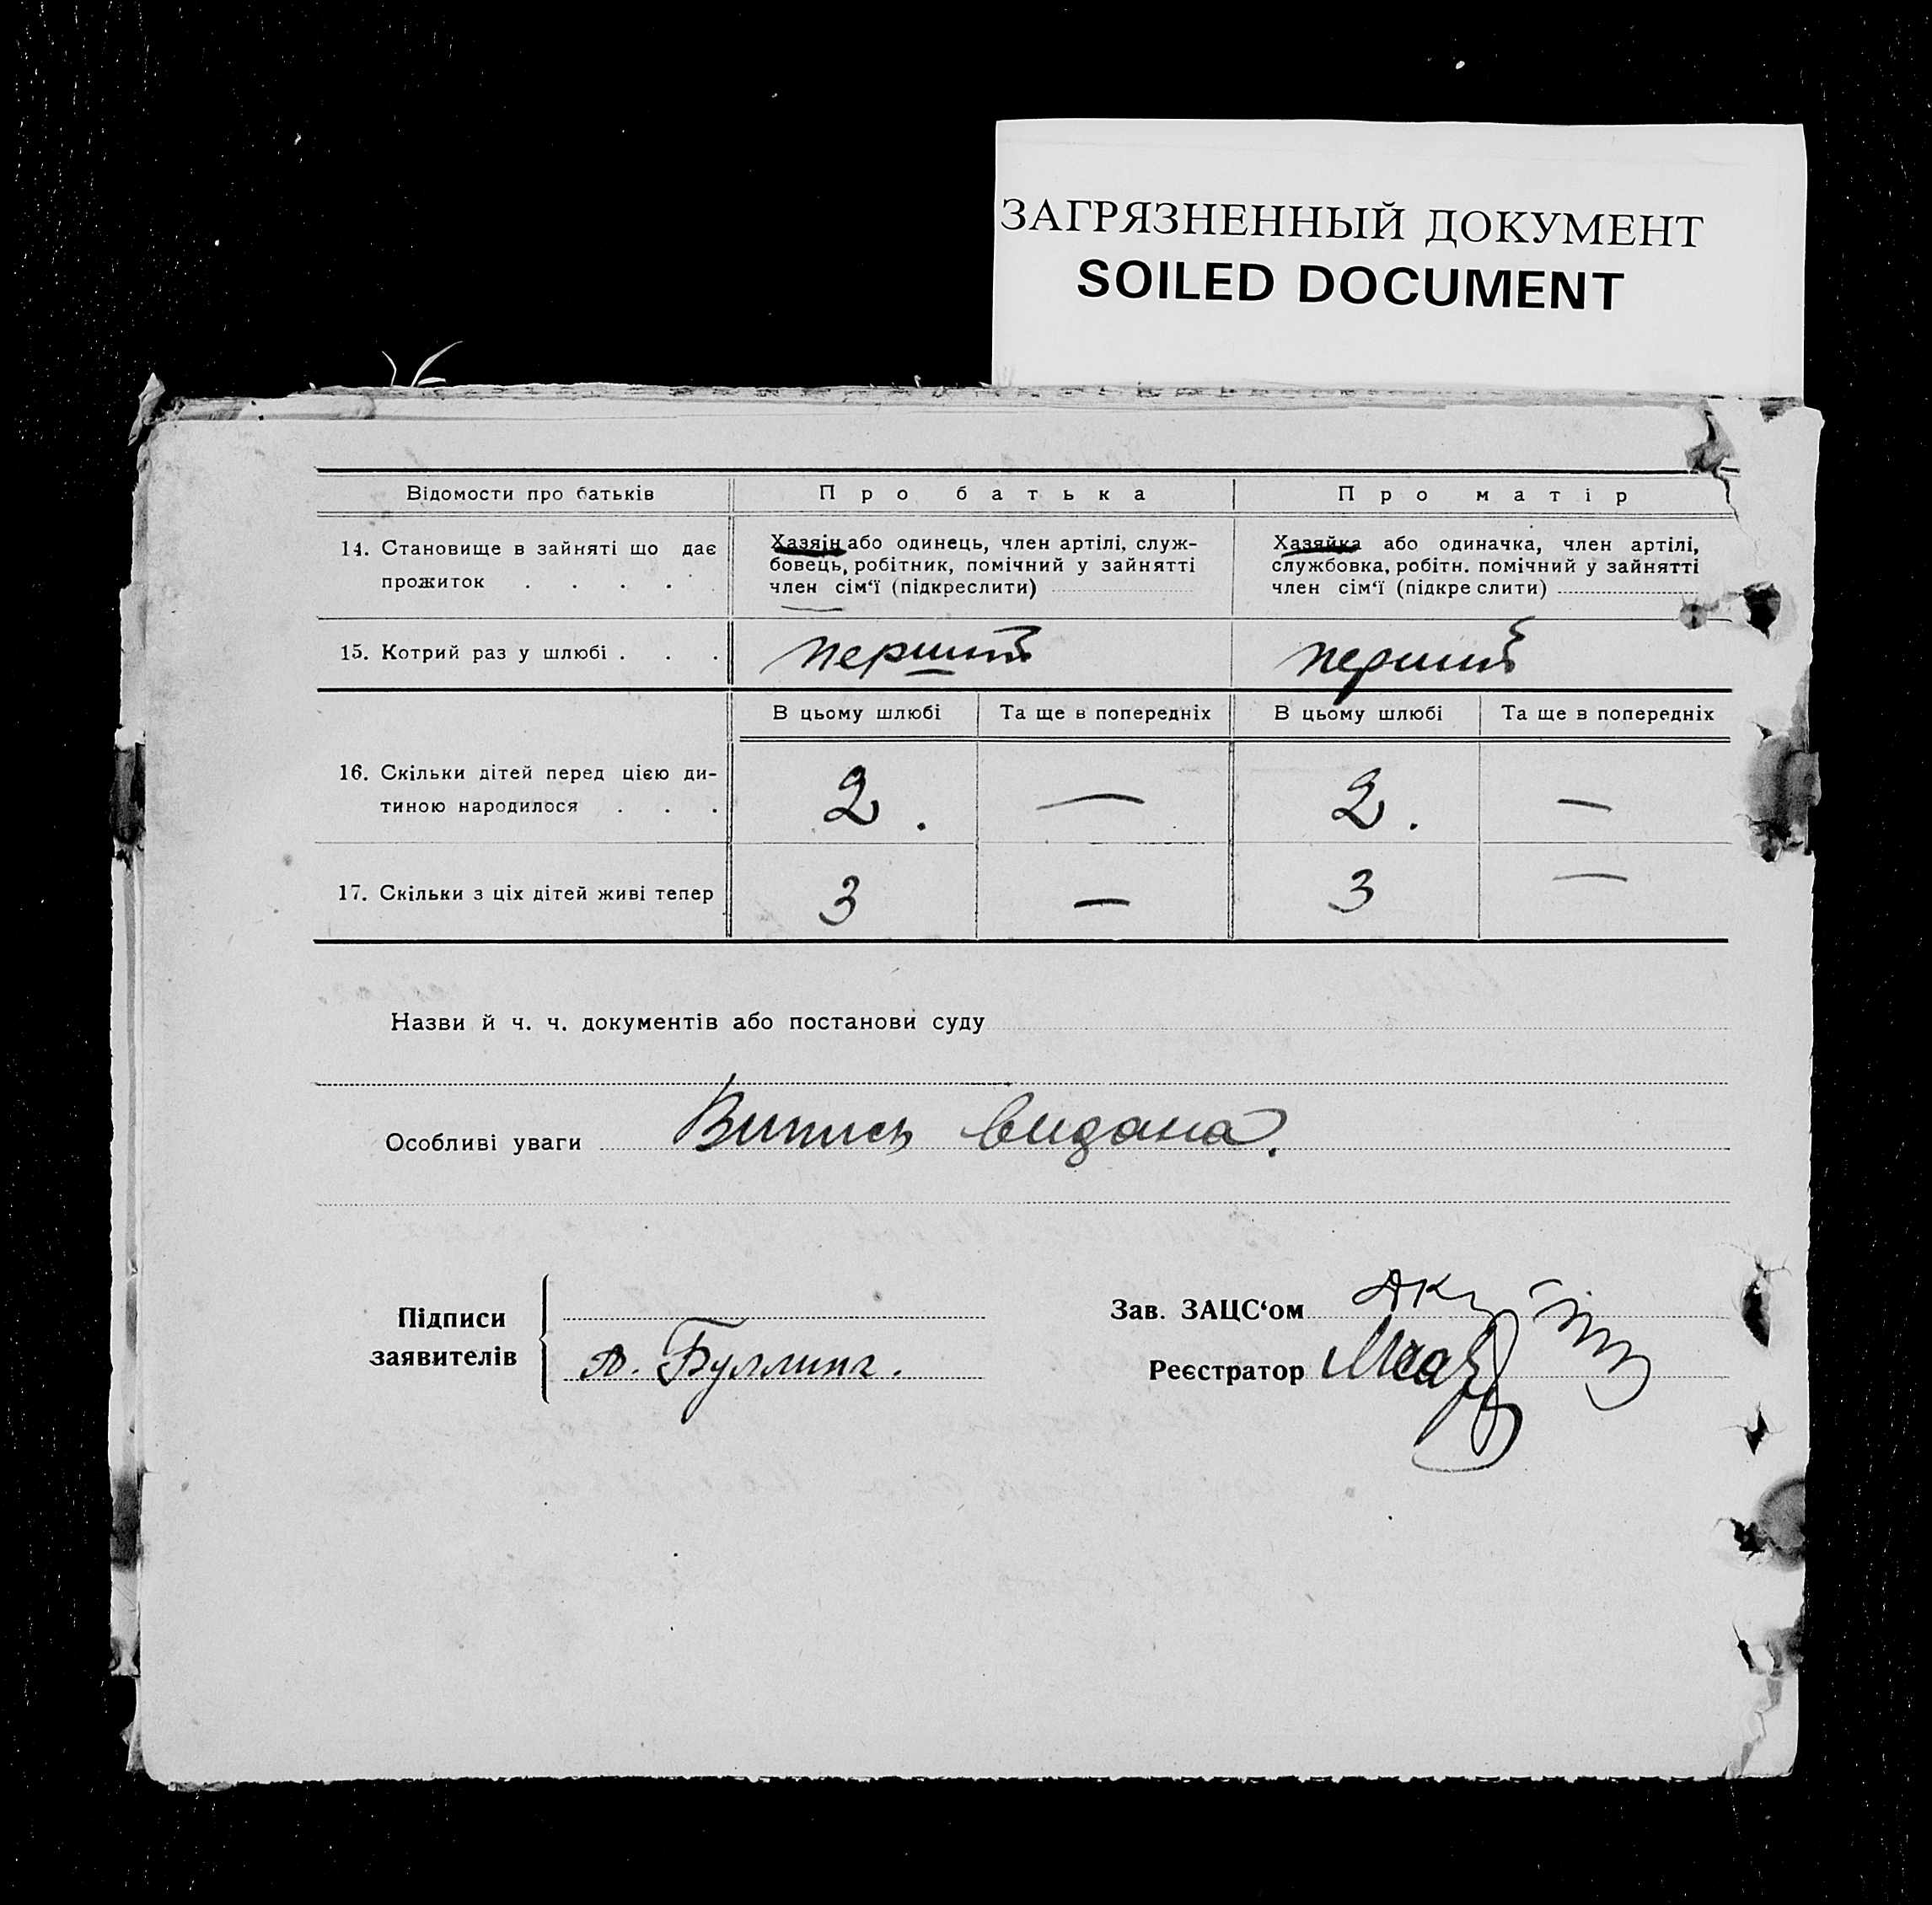 ЗАГРЯЗНЕННЫЙ ДОКУМЕНТ
SOILED DOCUMENT
Відомости про батьків Про батька Про матір
14. Становище в зайняті що дає прожиток . . . .
Хазяїн або одинець, член артілі, служ-
бовець, робітник, помічний у зайнятті
член сім‘ї (підкреслити)
Хазяйка або одиначка, член артілі,
службовка, робітн. помічний у зайнятті
член сім‘ї (підкреслити)
15. Котрий раз у шлюбі . . . перший перший
В цьому шлюбі Та ще в попередніх В цьому шлюбі Та ще в попередніх
16. Скільки дітей перед цією ди-
тиною народилося . . . 2. — 2. —
17. Скільки з ціх дітей живі тепер 3 — 3 —
Назви й ч. ч. документів або постанови суду
Особливі уваги Випись видана.
Підписи
заявителів
А. Буллинг.
Зав. ЗАЦС‘ом
Реєстратор